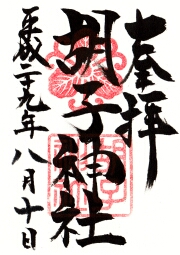 奉拝
胡子神社
平成二十九年八月十日